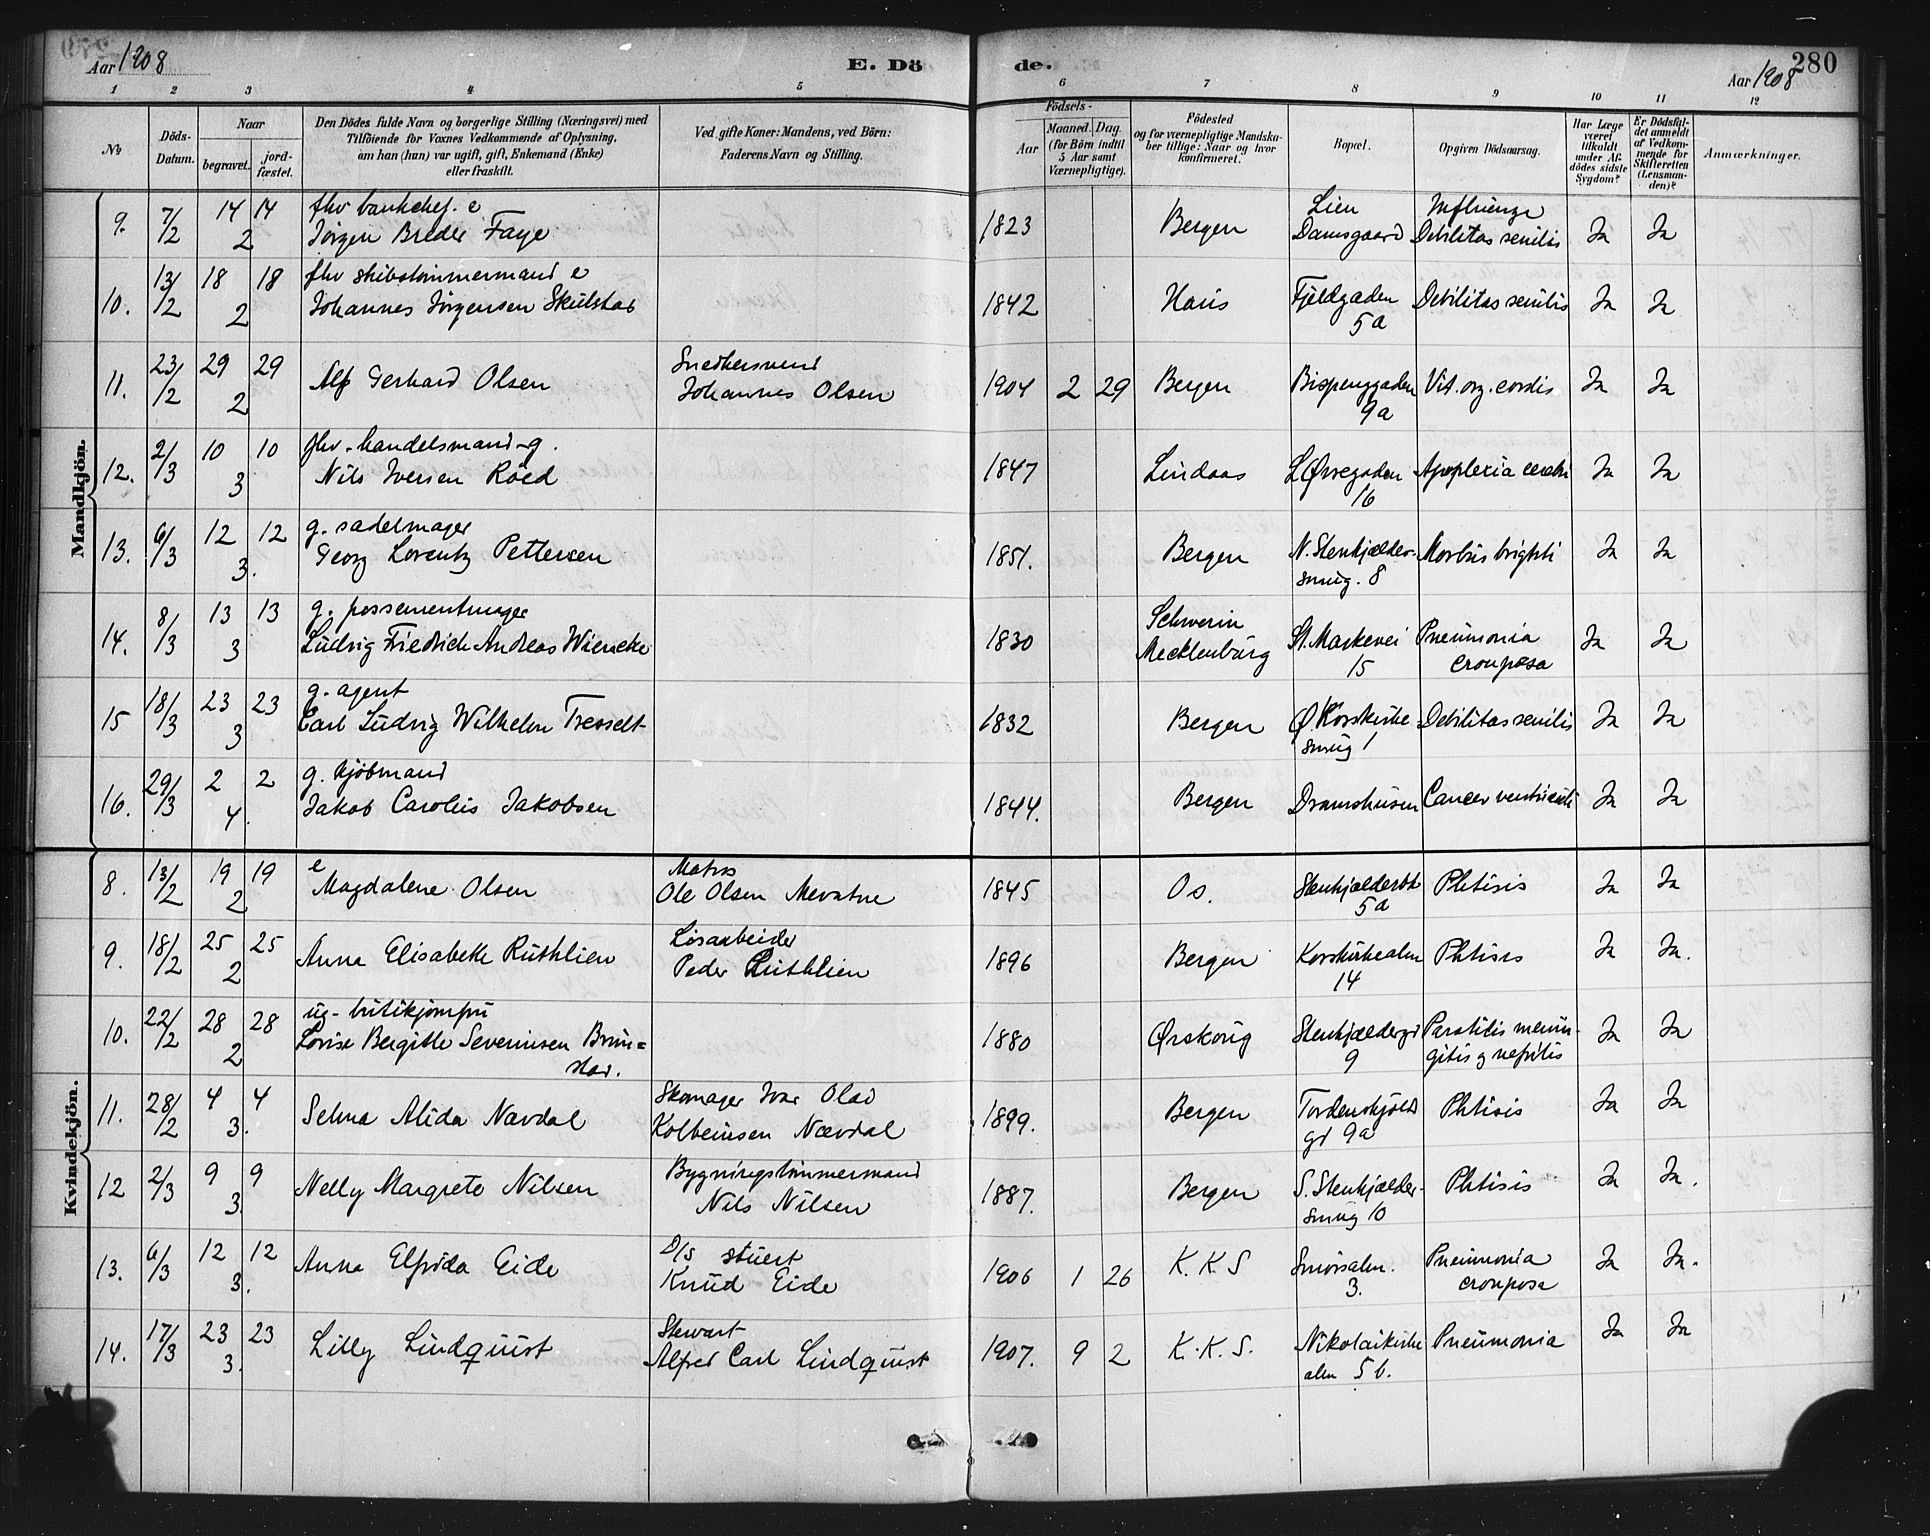 Aar 1908
E. Dö
de.
280
Aar 1908
1 2 3 4 5 6 7 8 9 10 11 12
No.
Döds-Datum.
Naar
begravet.
jord-fæstet.
Den Dödes fulde Navn og borgerlige Stilling (Næringsvei) med
Tilföiende for Voxnes Vedkommende af Oplysning.
om han (hun) var ugift, gift, Enkemand (Enke)
eller fraskilt.
Ved gifte Koner: Mandens, ved Börn:
Faderens Navn og Stilling.
Födsels-
Aar
Maaned. Dag.
(for Börn indtil
5 Aar samt
Værnepligtige).
Födested
og for værnepligtige Mandska-
ber tillige: Naar og hvor
konfirmeret.
Bopæl.
Opgiven Dödsaarsag.
Har Læge
været
tilkaldt
under Af-
dödes sidste
Sygdom?
Er Dödsfal-
det anmeldt
af Vedkom-
mende for
Skifteretten
(Lensman-
den)?
Anmærkninger.
Mandkjön.
9. 7/2 14/2 14 fhv bankchef. e
Jørgen Breder Faye 1823 Bergen Lien
Damsgaard Influenza
Debilitas senilis Ja Ja
10. 13/2 18/2 18 fhv skibstømmermand e
Johannes Jörgensen Skulstad 1842 Haus Fjeldgaden
5a Debilitas senilis Ja Ja
11. 23/2 29/2 29 Alf Gerhard Olsen Snedkersvend
Johannes Olsen 1904 2 29 Bergen Bispenggaden
9a Vit. org. cordis Ja Ja
12. 2/3 10/3 10 fhv. handelsmand g.
Nils Iversen Röed 1847 Lindaas L Øvregaden
16 Apoplexia cerebri Ja Ja
13. 6/3 12/3. 12 g. sadelmager
Georg Lorentz Pettersen 1851. Bergen N. Stenkjælder-
smug. 8 Morbus brighti Ja Ja
14. 8/3 13/3 13 g. possementmager
Ludvig Friedrich Andreas Wiencke 1830 Schwerin
Mecklenburg St. Markevei
15 Pneumonia
crouposa Ja Ja
15 18/3 23/3 23 g. agent
Carl Ludvig Wilhelm Tresselt 1832 Bergen Ø. Korskirke-
smug 1 Debilitas senilis Ja Ja
16. 29/3 2/4. 2 g. kjöbmand
Jakob Carolius Jakobsen 1844. Bergen Dramshusen Cancer ventriculi Ja Ja
Kvindekjön.
8. 13/2 19/2 19 e
Magdalene Olsen Matros
Ole Olsen Mevatne 1845 Os. Stenkjælderbk
5a Phtisis Ja Ja
9. 18/2 25/2 25 Anna Elisabeth Ruthlien Løsarbeider
Peder Ruthlien 1896 Bergen Korskirkealm
14 Phtisis Ja Ja.
10. 22/2 28/2 28 ug- butikjomfru
Lovise Bergitte Severinsen Brun=
stad. 1880 Ørskoug Stenkjældergd
9 Parotitis menin-
gitis g nefritis Ja Ja
11. 28/2 4/3. 4 Selma Alida Navdal Skomager Ivar Olai
Kolbeinsen Nævdal 1899. Bergen Tordenskjöld
gd 9a Phtisis Ja Ja
12 2/3 9/3 9 Nelly Margrete Nilsen Bygningstömmermand
Nils Nilsen 1887. Bergen S. Stenkjælder-
smug 10 Phtisis Ja Ja.
13. 6/3 12/3. 12 Anna Elfrida Eide D/s stuert
Knud Eide 1906 1 26 K. K. S Smörsalm.
3. Pneumonia
crouposa Ja Ja.
14. 17/3 23/3. 23 Lilly Lindquist Stewart
Alfred Carl Lindquist 1907. 9 2 K. K. S. Nikolaikirke
alm 5 b. Pneumonia Ja Ja